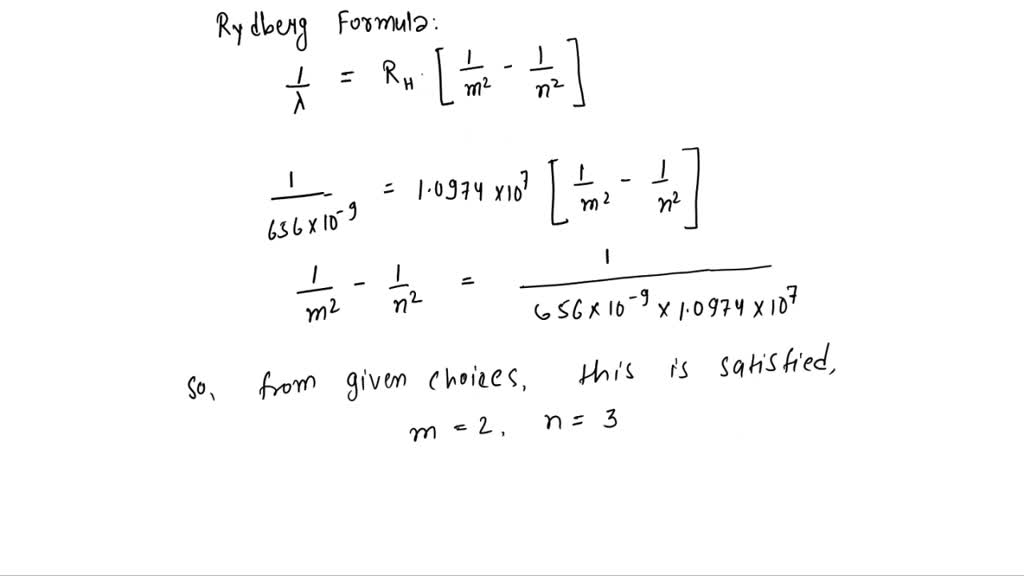 Rydberg Formula:
1/λ = R_H · [1/m² - 1/n²]
1/(636×10⁻⁹) = 1.0974 ×10⁷ [1/m² - 1/n²]
1/m² - 1/n² = 1/(656×10⁻⁹ × 1.0974 × 10⁷)
so, from given choices, this is satisfied,
m = 2, n = 3